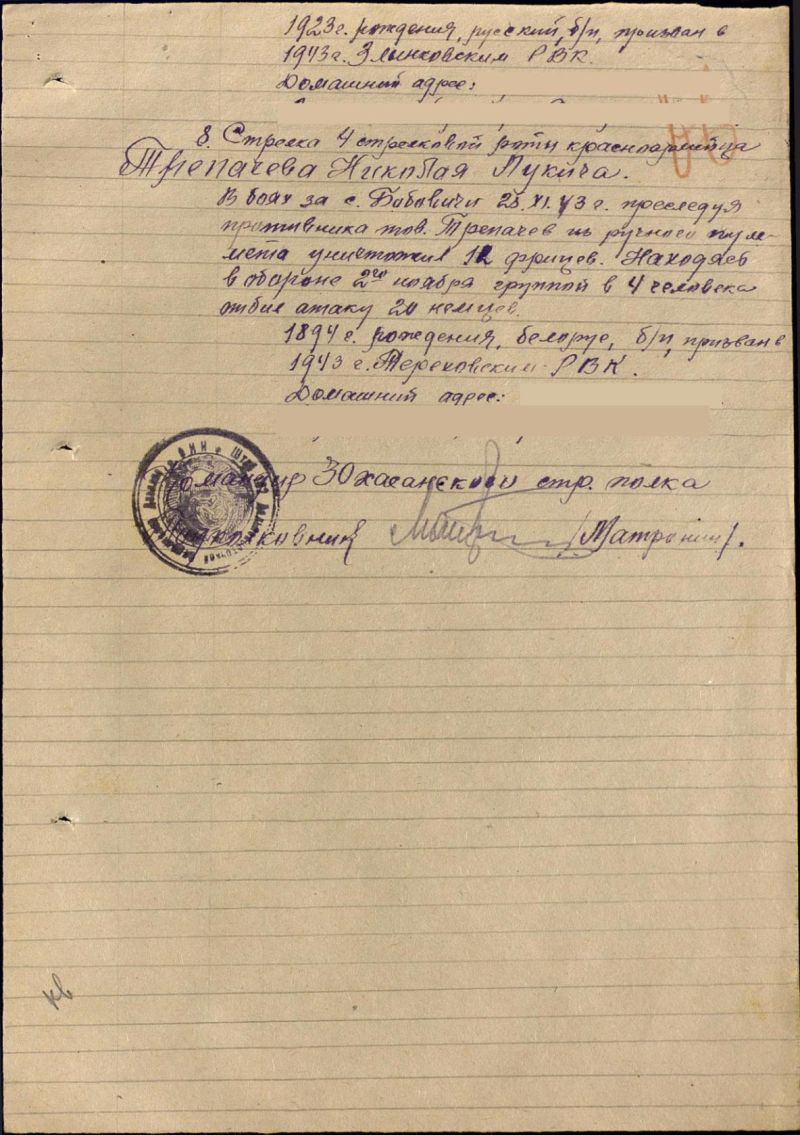 1923 г. рождения, русский, б/п, призван в
1943 г. Злынковским РВК.
Домашний адрес:
8. Стрелка 4 стрелковой роты красноармейца
Трепачева Николая Лукича.
В боях за с. Бобовичи 28.XI.43 г. преследуя
противника тов. Трепачев из ручного пуле-
мета уничтожил 12 фрицев. Находяс
в обороне 2го ноября группой в 4 человека
отбил атаку 20 немцев.
1894 г. рождения, белорус, б/п, призван в
1943 г. Тереховским РВК.
Домашний адрес:
Командир 30 хасанского стр. полка
Подполковник /Матронин/.